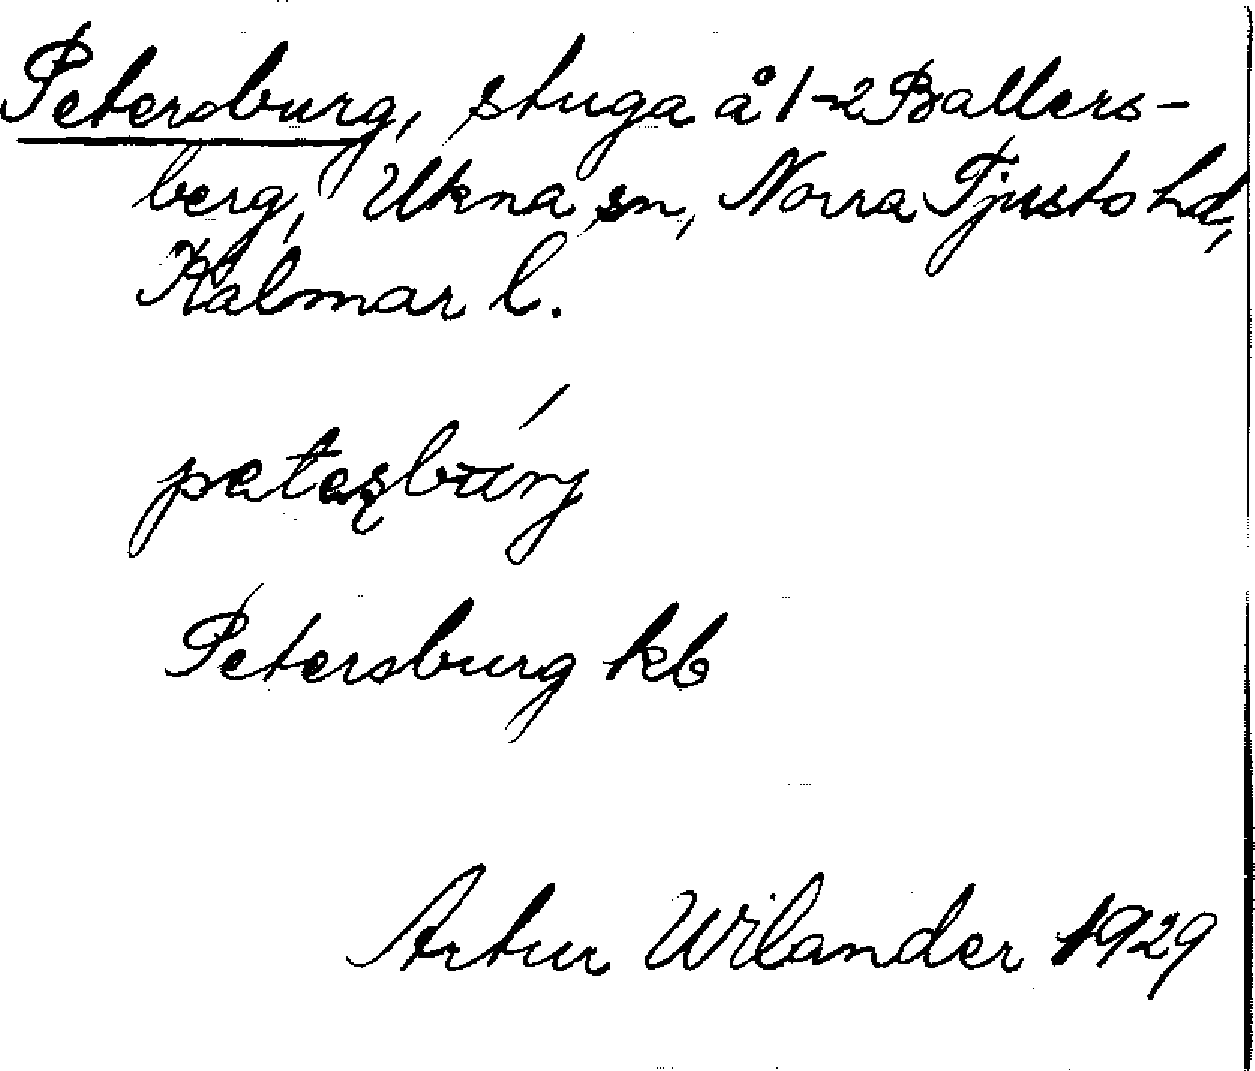 Petersburg, stuga å 1-2 Ballers-
berg, Ukna sn, Norra Tjusts hd,
Kalmar l.
Petersburg kb
Artur Wilander 1929